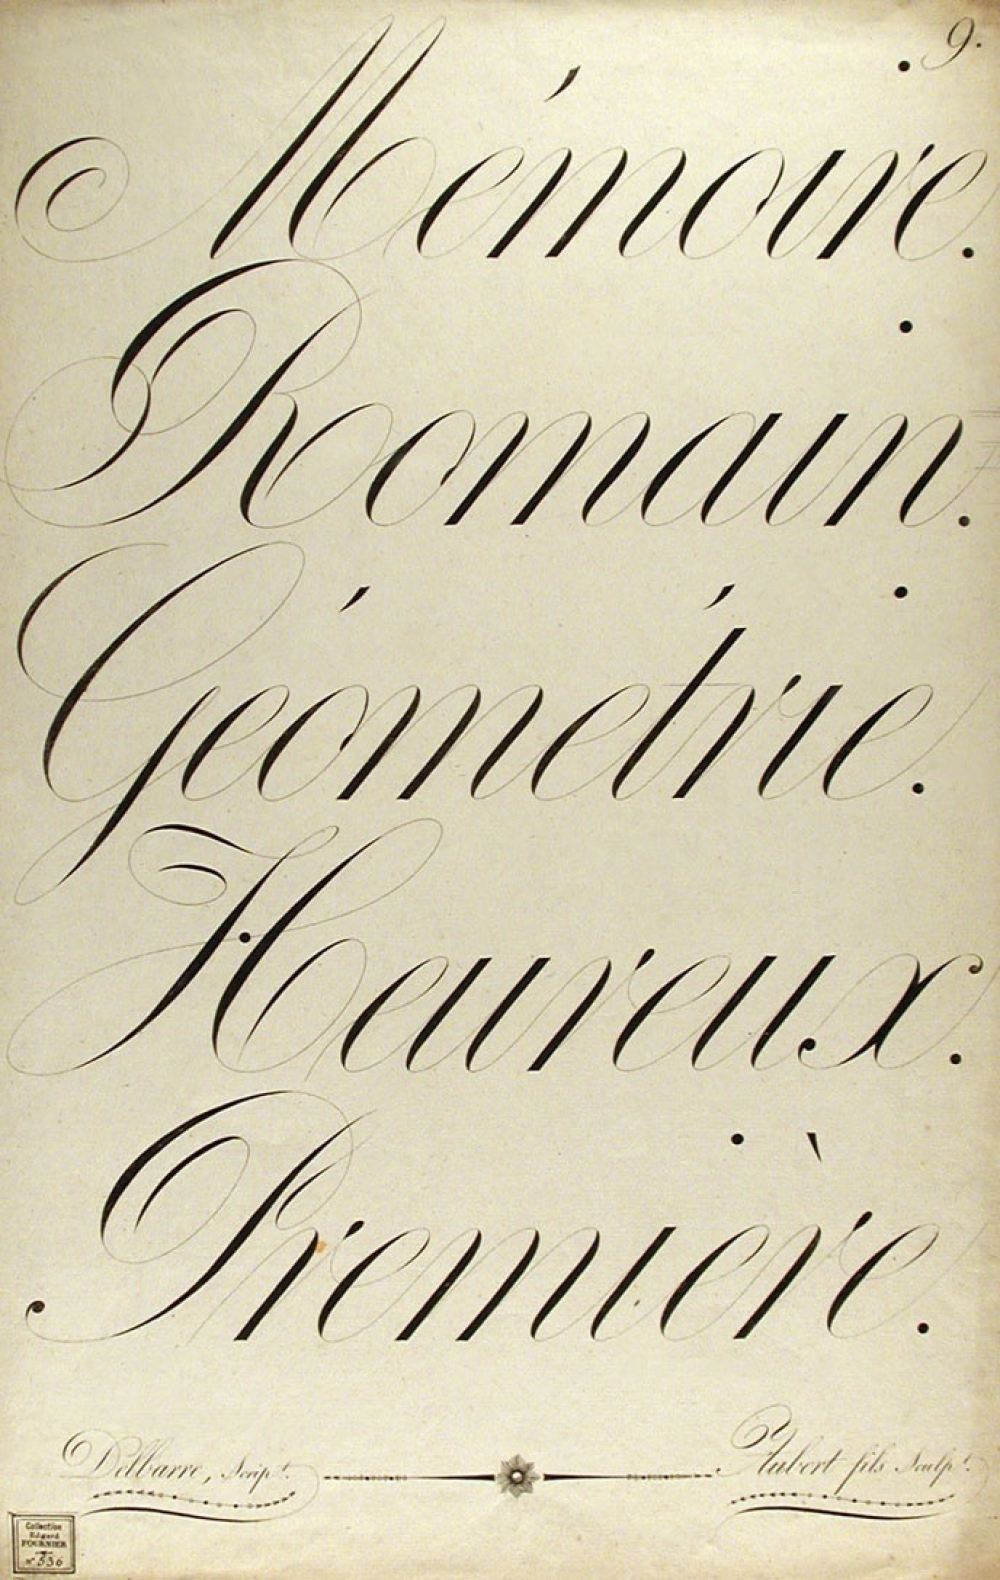 9.
Mémoire.
Romain.
Géométrie.
Heureux.
Première.
Delbarre, Script.
Aubert fils Sculpt.
Collection
Edgard
FOURNIER
n° 536